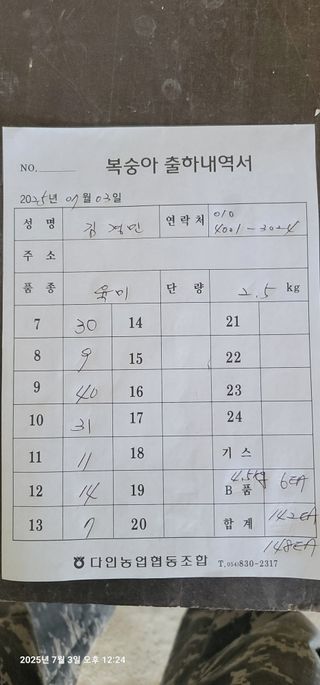 NO.
복숭아 출하내역서
2025년 07월 03일
성 명 김경민 연락처 010 4001-3024
주 소
품 종 육미 단 량 2.5 kg
7 30 14 21
8 9 15 22
9 40 16 23
10 31 17 24
11 11 18 기 스
12 14 19 B 품 4.5kg 6EA
13 7 20 합 계 142EA
148EA
다인농업협동조합 T.(054)830-2317
2025년 7월 3일 오후 12:24